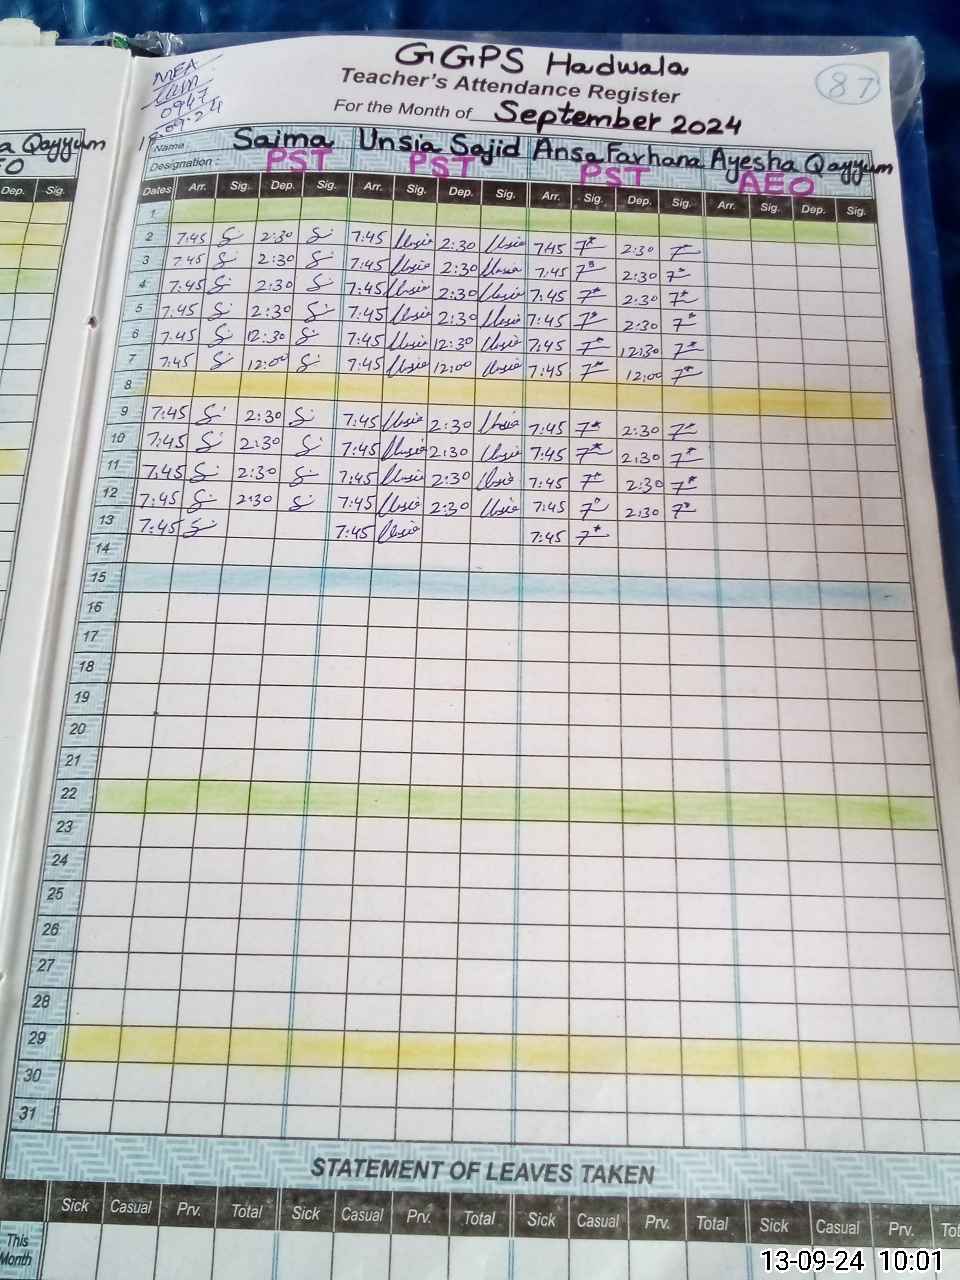 GGPS Hadwala
Teacher's Attendance Register
For the Month of September 2024
87
MEA
0947
a Qayyum
EO
Dep. Sig.
Name Saima Unsia Sajid Ansa Farhana Ayesha Qayyum
Designation : PST PST PST AEO
Dates Arr. Sig. Dep. Sig. Arr. Sig. Dep. Sig. Arr. Sig. Dep. Sig. Arr. Sig. Dep. Sig.
1
2 7:45 2:30 7:45 Unsia 2:30 Unsia 7:45 2:30
3 7:45 2:30 7:45 Unsia 2:30 Unsia 7:45 2:30
4 7:45 2:30 7:45 Unsia 2:30 Unsia 7:45 2:30
5 7:45 2:30 7:45 Unsia 2:30 Unsia 7:45 2:30
6 7:45 12:30 7:45 Unsia 12:30 Unsia 7:45 12:30
7 7:45 12:00 7:45 Unsia 12:00 Unsia 7:45 12:00
8
9 7:45 2:30 7:45 Unsia 2:30 Unsia 7:45 2:30
10 7:45 2:30 7:45 Unsia 2:30 Unsia 7:45 2:30
11 7:45 2:30 7:45 Unsia 2:30 Unsia 7:45 2:30
12 7:45 2:30 7:45 Unsia 2:30 Unsia 7:45 2:30
13 7:45 7:45 Unsia 7:45
14
15
16
17
18
19
20
21
22
23
24
25
26
27
28
29
30
31
STATEMENT OF LEAVES TAKEN
Sick Casual Prv. Total Sick Casual Prv. Total Sick Casual Prv. Total Sick Casual Prv. Tot
This
Month
13-09-24 10:01